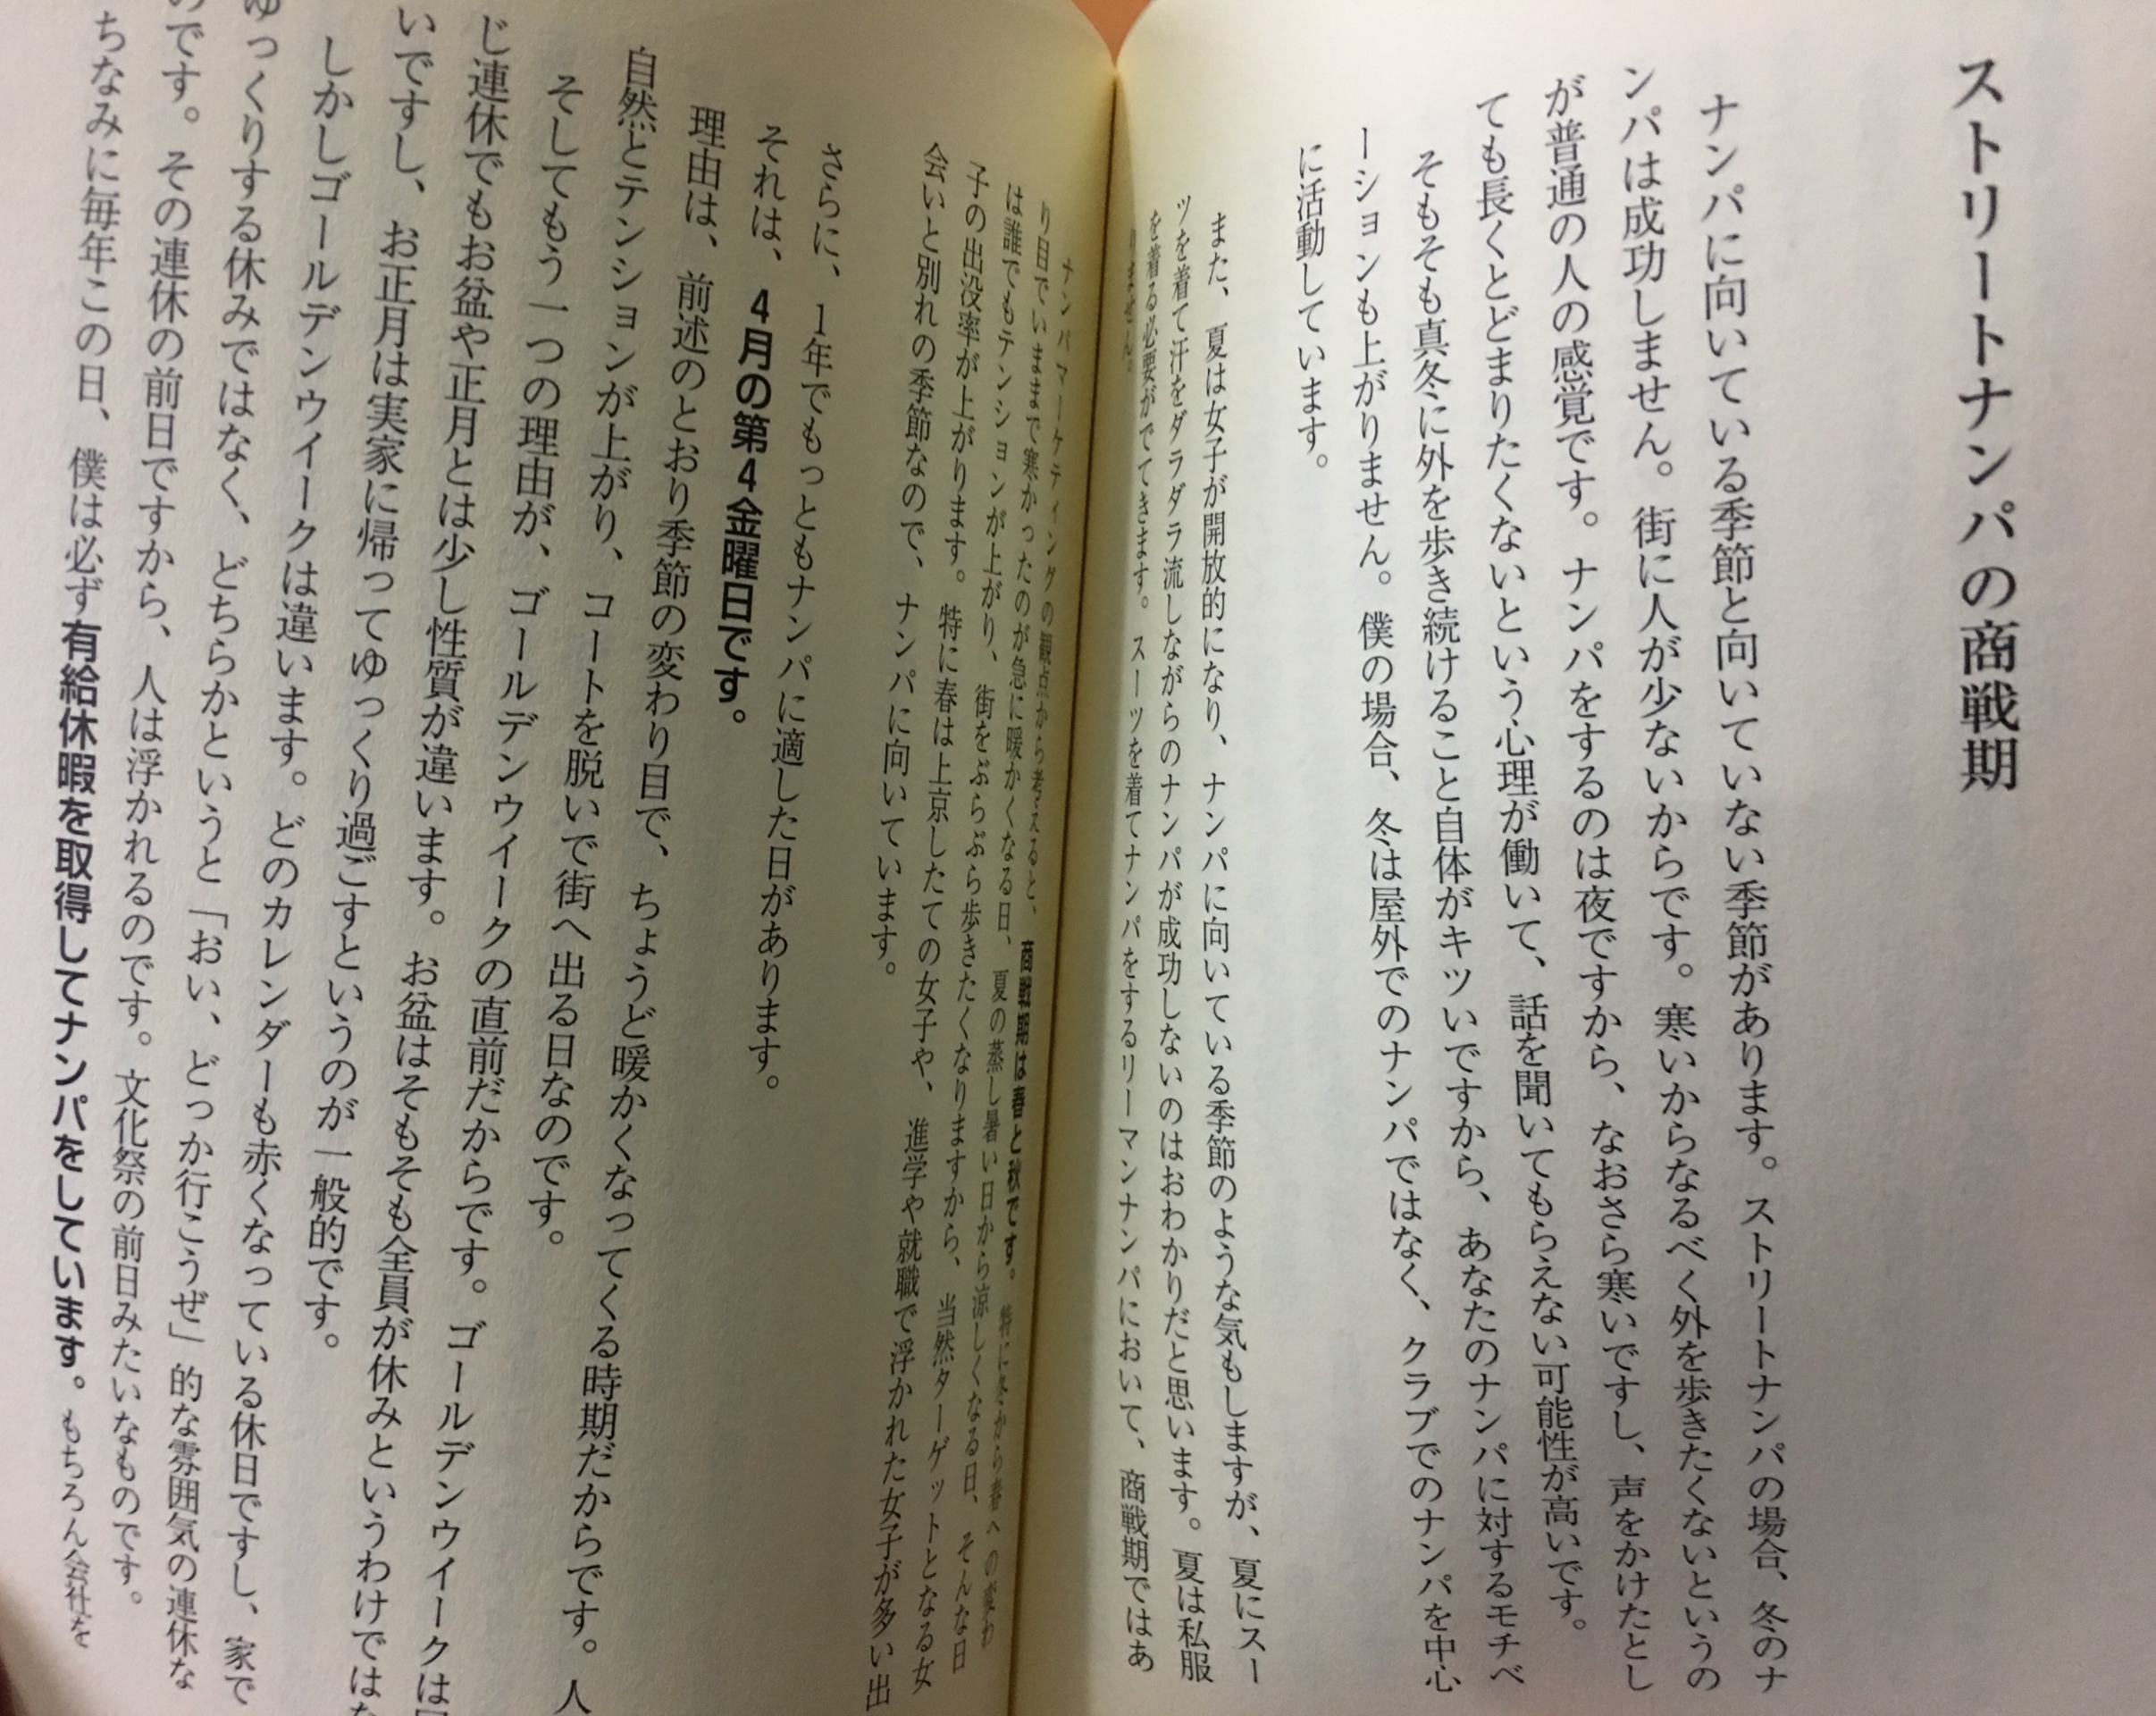 ストリートナンパの商戦期
ナンパに向いている季節と向いていない季節があります。ストリートナンパの場合、冬のナ
ンパは成功しません。街に人が少ないからです。寒いからなるべく外を歩きたくないというの
が普通の人の感覚です。ナンパをするのは夜ですから、なおさら寒いですし、声をかけたとし
ても長くとどまりたくないという心理が働いて、話を聞いてもらえない可能性が高いです。
そもそも真冬に外を歩き続けること自体がキツいですから、あなたのナンパに対するモチベ
ーションも上がりません。僕の場合、冬は屋外でのナンパではなく、クラブでのナンパを中心
に活動しています。
また、夏は女子が開放的になり、ナンパに向いている季節のような気もしますが、夏にスー
ツを着て汗をダラダラ流しながらのナンパが成功しないのはおわかりだと思います。夏は私服
を着る必要がでてきます。スーツを着てナンパをするリーマンナンパにおいて、商戦期ではあ
りません。
ナンパマーケティングの観点から考えると、商戦期は春と秋です。特に冬から春への変わ
り目でいままで寒かったのが急に暖かくなる日、夏の蒸し暑い日から涼しくなる日、そんな日
は誰でもテンションが上がり、街をぶらぶら歩きたくなりますから、当然ターゲットとなる女
子の出没率が上がります。特に春は上京したての女子や、進学や就職で浮かれた女子が多い出
会いと別れの季節なので、ナンパに向いています。
さらに、1年でもっともナンパに適した日があります。
それは、4月の第4金曜日です。
理由は、前述のとおり季節の変わり目で、ちょうど暖かくなってくる時期だからです。人
自然とテンションが上がり、コートを脱いで街へ出る日なのです。
そしてもう一つの理由が、ゴールデンウイークの直前だからです。ゴールデンウイークは
じ連休でもお盆や正月とは少し性質が違います。お盆はそもそも全員が休みというわけではな
いですし、お正月は実家に帰ってゆっくり過ごすというのが一般的です。
しかしゴールデンウイークは違います。どのカレンダーも赤くなっている休日ですし、家で
ゆっくりする休みではなく、どちらかというと「おい、どっか行こうぜ」的な雰囲気の連休な
のです。その連休の前日ですから、人は浮かれるのです。文化祭の前日みたいなものです。
ちなみに毎年この日、僕は必ず有給休暇を取得してナンパをしています。もちろん会社を